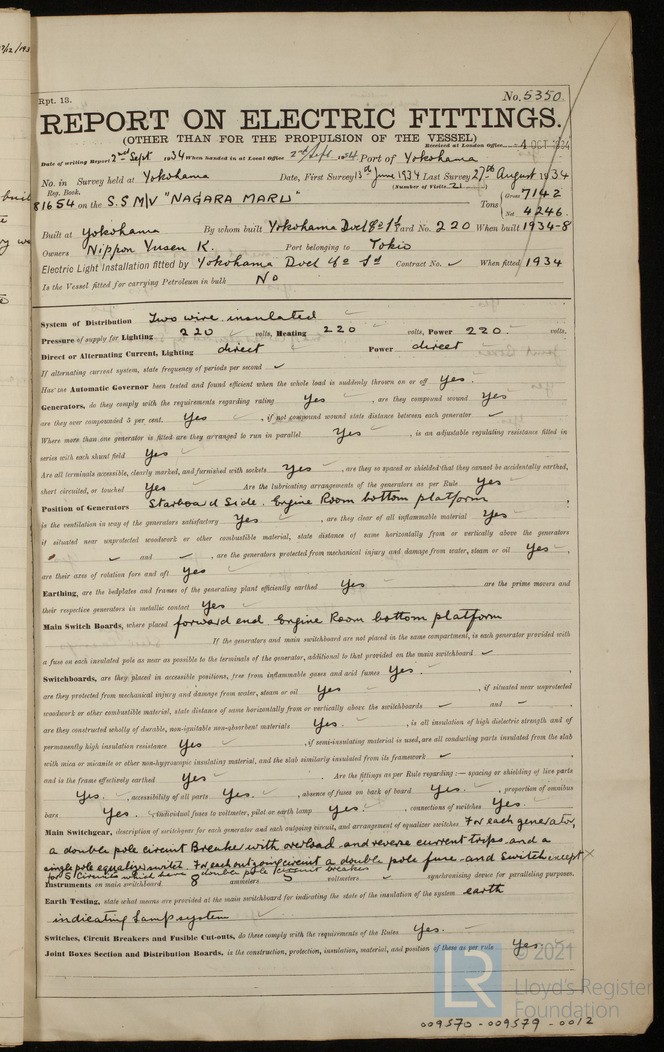 Rpt. 13.
No. 5350.
REPORT ON ELECTRIC FITTINGS.
(OTHER THAN FOR THE PROPULSION OF THE VESSEL)
Received at London Office 4 OCT 1934
Date of writing Report 2nd Sept 1934 When handed in at Local Office 2nd Sept. 1934 Port of Yokohama
No. in Survey held at Yokohama Date, First Survey 13th June 1934 Last Survey 27th August 1934
Reg. Book. (Number of Visits 21)
81654 on the S.S M/V "NAGARA MARU" Tons { Gross 7142
Net 4246.
Built at Yokohama By whom built Yokohama Dock Co Ld Yard No. 220 When built 1934-8
Owners Nippon Yusen K. Port belonging to Tokio
Electric Light Installation fitted by Yokohama Dock Co Ld Contract No. ✓ When fitted 1934
Is the Vessel fitted for carrying Petroleum in bulk No
System of Distribution Two wire insulated
Pressure of supply for Lighting 220 volts, Heating 220 volts, Power 220. volts.
Direct or Alternating Current, Lighting direct Power direct
If alternating current system, state frequency of periods per second ✓
Has the Automatic Governor been tested and found efficient when the whole load is suddenly thrown on or off Yes.
Generators, do they comply with the requirements regarding rating Yes , are they compound wound Yes
are they over compounded 5 per cent. Yes , if not compound wound state distance between each generator ✓
Where more than one generator is fitted are they arranged to run in parallel Yes , is an adjustable regulating resistance fitted in
series with each shunt field Yes
Are all terminals accessible, clearly marked, and furnished with sockets Yes , are they so spaced or shielded that they cannot be accidentally earthed,
short circuited, or touched Yes Are the lubricating arrangements of the generators as per Rule Yes
Position of Generators Starboard Side. Engine Room bottom platform ,
is the ventilation in way of the generators satisfactory Yes , are they clear of all inflammable material Yes
if situated near unprotected woodwork or other combustible material, state distance of same horizontally from or vertically above the generators
✓ and ✓ , are the generators protected from mechanical injury and damage from water, steam or oil Yes ,
are their axes of rotation fore and aft Yes
Earthing, are the bedplates and frames of the generating plant efficiently earthed Yes are the prime movers and
their respective generators in metallic contact Yes
Main Switch Boards, where placed forward end Engine Room bottom platform
If the generators and main switchboard are not placed in the same compartment, is each generator provided with
a fuse on each insulated pole as near as possible to the terminals of the generator, additional to that provided on the main switchboard ✓
Switchboards, are they placed in accessible positions, free from inflammable gases and acid fumes Yes. ,
are they protected from mechanical injury and damage from water, steam or oil Yes , if situated near unprotected
woodwork or other combustible material, state distance of same horizontally from or vertically above the switchboards ✓ and ✓ ,
are they constructed wholly of durable, non-ignitable non-absorbent materials Yes. , is all insulation of high dielectric strength and of
permanently high insulation resistance Yes , if semi-insulating material is used, are all conducting parts insulated from the slab
with mica or micanite or other non-hygroscopic insulating material, and the slab similarly insulated from its framework ✓ ,
and is the frame effectively earthed Yes Are the fittings as per Rule regarding :— spacing or shielding of live parts
Yes. , accessibility of all parts Yes. , absence of fuses on back of board Yes. , proportion of omnibus
bars Yes. , individual fuses to voltmeter, pilot or earth lamp Yes. , connections of switches Yes.
Main Switchgear, description of switchgear for each generator and each outgoing circuit, and arrangement of equalizer switches For each generator,
a double pole circuit Breaker with overload and reverse current trips and a
single pole equalizer switch. For each outgoing circuit a double pole fuse and Switch except
for 5 circuits which have double pole circuit breakers
Instruments on main switchboard 8 ammeters 5 voltmeters ✓ synchronising device for paralleling purposes.
Earth Testing, state what means are provided at the main switchboard for indicating the state of the insulation of the system earth
indicating lamp system
Switches, Circuit Breakers and Fusible Cut-outs, do these comply with the requirements of the Rules Yes.
Joint Boxes Section and Distribution Boards, is the construction, protection, insulation, material, and position of these as per rule Yes
LR
© 2021
Lloyd's Register
Foundation
009570-009579-0012